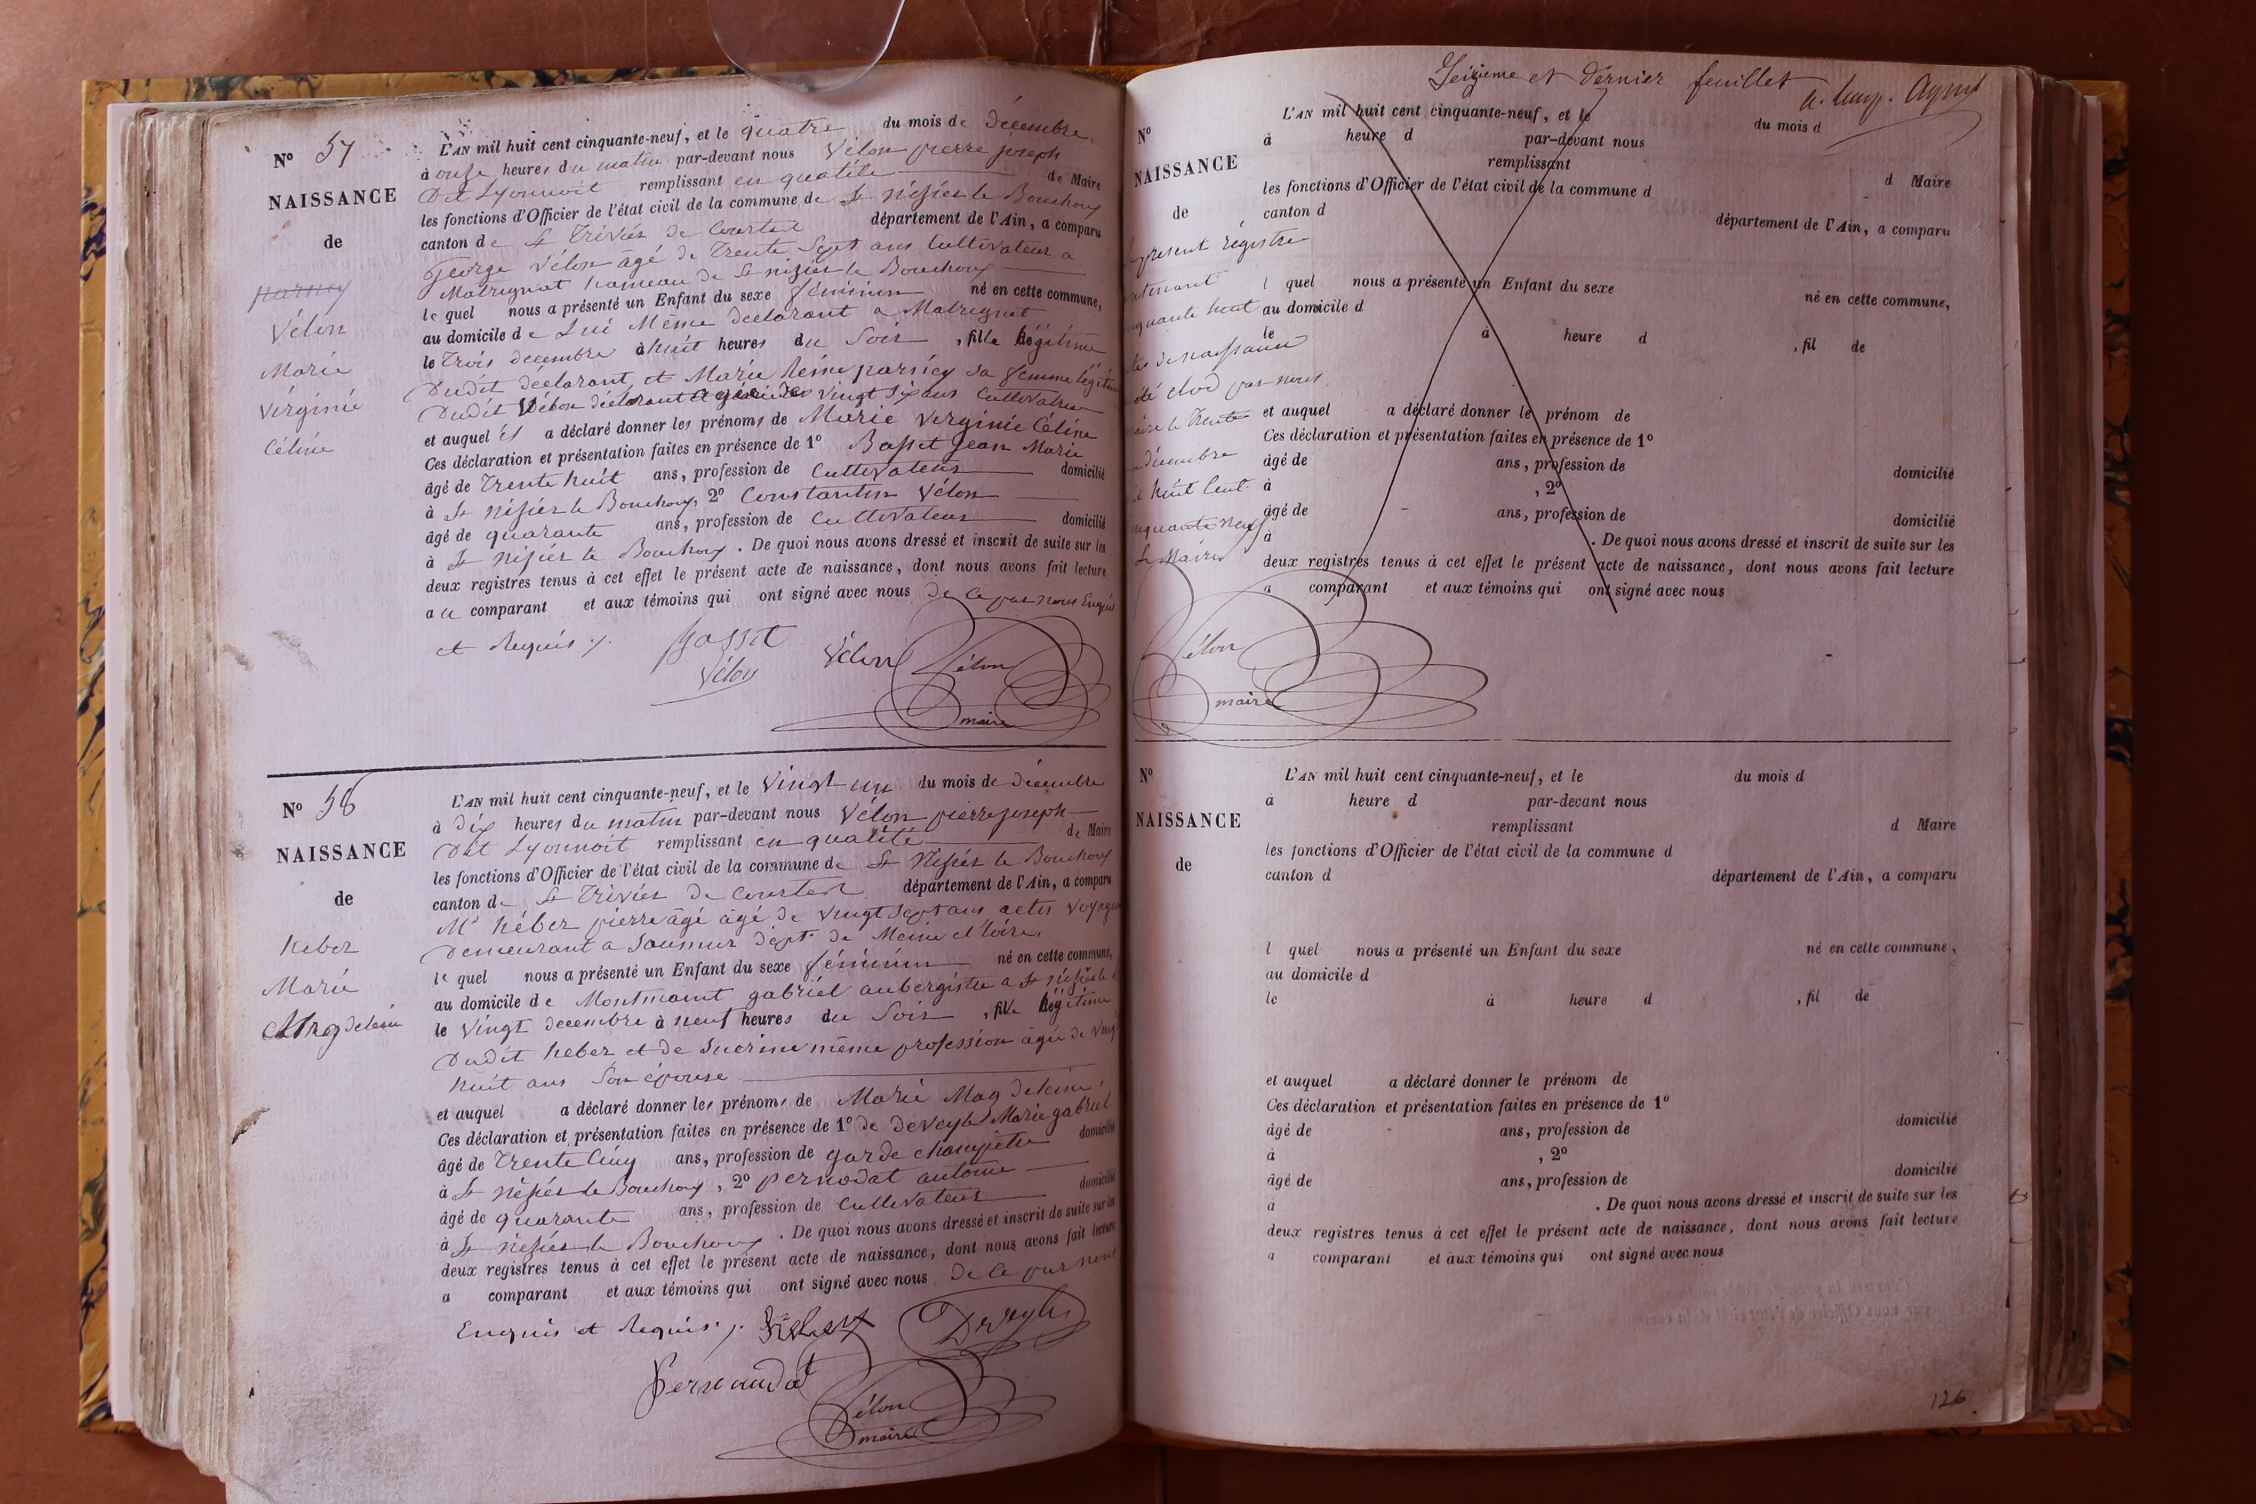 N° 57
NAISSANCE
de
Vélon
Marie
Vérginie
Céline
L'AN mil huit cent cinquante-neuf, et le quatre du mois de Décembre
à onze heures du matin par-devant nous Vélon pierre joseph
Dit Lyonnoit remplissant en qualité de Maire
les fonctions d'Officier de l'état civil de la commune de St Nésiér le Bouchoux
canton de St Triviér de Courtes département de l'Ain, a comparu
George Vélon agé de Trente Sept ans Cultivateur a
Matrignat hameau de St nizier le Bouchoux
le quel nous a présenté un Enfant du sexe féminin né en cette commune,
au domicile de Lui Même déclarant a Matrignat
le Trois décembre à huit heures du Soir , fille légitime
Dudit déclarant et Marie Réine parnicy sa femme légitime
Dudit Vélon déclarant agée de vingt Six ans Cultivatrice
et auquel il a déclaré donner les prénoms de Marie Verginie Céline
Ces déclaration et présentation faites en présence de 1° Basset Jean Marie
âgé de Trente huit ans, profession de Cultivateur domicilié
à St Nésiér le Bouchoux, 2° Constantin Vélon
âgé de quarante ans, profession de Cultivateur domicilié
à St Nésiér le Bouchoux . De quoi nous avons dressé et inscrit de suite sur les
deux registres tenus à cet effet le présent acte de naissance, dont nous avons fait lecture
a u comparant et aux témoins qui ont signé avec nous de ce par nous Enquis
et Requis ./.
Basset
Vélon Vélon Vélon
maire
N° 58
NAISSANCE
de
heber
Marie
Magdeleine
L'AN mil huit cent cinquante-neuf, et le Vingt un du mois de Décembre
à Dix heures du matin par-devant nous Vélon pierre joseph
Dit Lyonnoit remplissant en qualité de Maire
les fonctions d'Officier de l'état civil de la commune de St Nésiér le Bouchoux
canton de St Triviér de Courtes département de l'Ain, a comparu
Mr héber pierre âgé âgé de vingt Sept ans
Demeurant a Saumur dépt. de Meine et Loire
le quel nous a présenté un Enfant du sexe féminin né en cette commune,
au domicile de Montmaint gabriel aubergiste a St Nésiér le
le Vingt decembre à neuf heures du Soir , fille légitime
Dudit heber et de même profession agée de vingt
huit ans Son épouse
et auquel a déclaré donner les prénoms de Marie Magdeleine
Ces déclaration et présentation faites en présence de 1° de Deveyle Marie gabriel
âgé de Trente Cinq ans, profession de garde champêtre domicilié
à St Nésiér le Bouchoux, 2° pernodat antoine
âgé de quarante ans, profession de Cultivateur domicilié
à St Nésiér le Bouchoux . De quoi nous avons dressé et inscrit de suite sur les
deux registres tenus à cet effet le présent acte de naissance, dont nous avons fait lecture
a comparant et aux témoins qui ont signé avec nous de ce par nous
Enquis et Requis ./.
Vélon
maire
Seizieme et Dérnier feuillet
N°
NAISSANCE
de
present régistre
quante huit
de naissance
été clod par nous
le Trente
décembre
huit Cent
cinquante neuf
Le Maire
Vélon
maire
L'AN mil huit cent cinquante-neuf, et le du mois d
à heure d par-devant nous
remplissant d Maire
les fonctions d'Officier de l'état civil de la commune d
canton d département de l'Ain, a comparu
l quel nous a présenté un Enfant du sexe né en cette commune,
au domicile d
le à heure d , fil de
et auquel a déclaré donner le prénom de
Ces déclaration et présentation faites en présence de 1°
âgé de ans, profession de domicilié
à , 2°
âgé de ans, profession de domicilié
à . De quoi nous avons dressé et inscrit de suite sur les
deux registres tenus à cet effet le présent acte de naissance, dont nous avons fait lecture
a comparant et aux témoins qui ont signé avec nous
N°
NAISSANCE
de
L'AN mil huit cent cinquante-neuf, et le du mois d
à heure d par-devant nous
remplissant d Maire
les fonctions d'Officier de l'état civil de la commune d
canton d département de l'Ain, a comparu
l quel nous a présenté un Enfant du sexe né en cette commune,
au domicile d
le à heure d , fil de
et auquel a déclaré donner le prénom de
Ces déclaration et présentation faites en présence de 1°
âgé de ans, profession de domicilié
à , 2°
âgé de ans, profession de domicilié
à . De quoi nous avons dressé et inscrit de suite sur les
deux registres tenus à cet effet le présent acte de naissance, dont nous avons fait lecture
a comparant et aux témoins qui ont signé avec nous
126